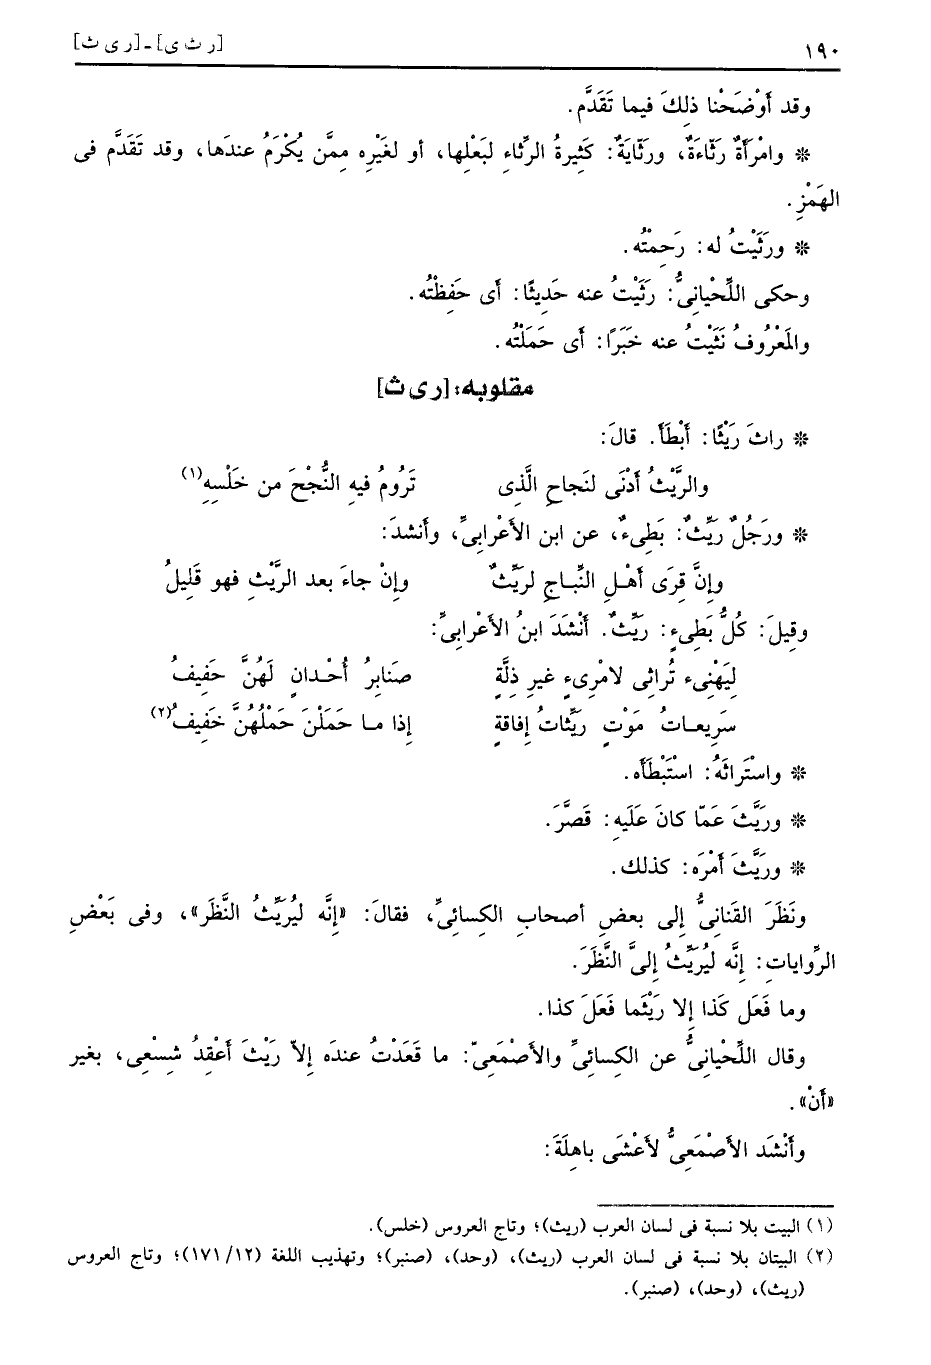 ١٩٠ [ر ث ى] ـ [ر ى ث]
وقد أَوْضَحْنا ذلِكَ فيما تَقَدَّم.
* وامْرَأَةٌ رَثّاءَةٌ، ورَثّايَةٌ: كَثِيرةُ الرِّثاءِ لبَعْلِها، أو لغَيْرِه ممَّن يُكْرَمُ عندَها، وقد تَقَدَّم فى
الهَمْزِ.
* ورَثَيْتُ له: رَحِمْتُه.
وحكى اللِّحْيانِىُّ: رَثَيْتُ عنه حَدِيثًا: أى حَفِظْتُه.
والمَعْرُوفُ نَثَيْتُ عنه خَبَرًا: أى حَمَلْتُه.
مقلوبه: [ر ى ث]
* راثَ رَيْثًا: أَبْطَأَ. قالَ:
والرَّيْثُ أَدْنَى لنَجاحِ الَّذِى تَرُومُ فيهِ النُّجْحَ من خَلْسِهِ(١)
* ورَجُلٌ رَيِّثٌ: بَطِىءٌ، عن ابن الأَعْرابىِّ، وأَنشدَ:
وإنَّ قِرَى أَهْـلِ النِّبـاجِ لرَيِّثٌ وإنْ جاءَ بعد الرَّيْثِ فهو قَلِيلُ
وقِيلَ: كُلُّ بَطِىءٍ: رَيِّثٌ. أَنْشَدَ ابنُ الأَعْرابِىِّ:
لِيَهْنِىء تُراثِى لامْرِىءٍ غيرِ ذِلَّةٍ صَنابِرُ أُحْـدانٍ لَهُنَّ حَفِيفُ
سَرِيعـاتُ مَوْتٍ رَيِّثاتُ إفاقةٍ إذا مـا حَمَلْنَ حَمْلُهُنَّ خَفِيفُ(٢)
* واسْتَراثَهُ: اسْتَبْطَأَه.
* ورَيَّثَ عَمّا كانَ عَلَيهِ: قَصَّرَ.
* ورَيَّثَ أَمْرَه: كذلك.
ونَظَرَ القَنانِىُّ إلى بعضِ أصحابِ الكسائِىِّ، فقالَ: «إنَّه ليُرَيِّثُ النَّظَر»، وفى بَعْضِ
الرِّوايات: إنَّه ليُرَيِّثُ إلىَّ النَّظَرَ.
وما فَعَل كَذا إلا رَيْثَما فَعَلَ كذا.
وقال اللِّحْيانِىُّ عن الكِسائِىِّ والأَصْمَعِىّ: ما قَعَدْتُ عندَه إلاّ رَيْثَ أَعْقِدُ شِسْعِى، بغير
«أَنْ».
وأَنْشَد الأَصْمَعِىُّ لأَعْشَى باهِلَةَ:
(١) البيت بلا نسبة فى لسان العرب (ريث)؛ وتاج العروس (خلس).
(٢) البيتان بلا نسبة فى لسان العرب (ريث)، (وحد)، (صنبر)؛ وتهذيب اللغة (١٢/ ١٧١)؛ وتاج العروس
(ريث)، (وحد)، (صنبر).